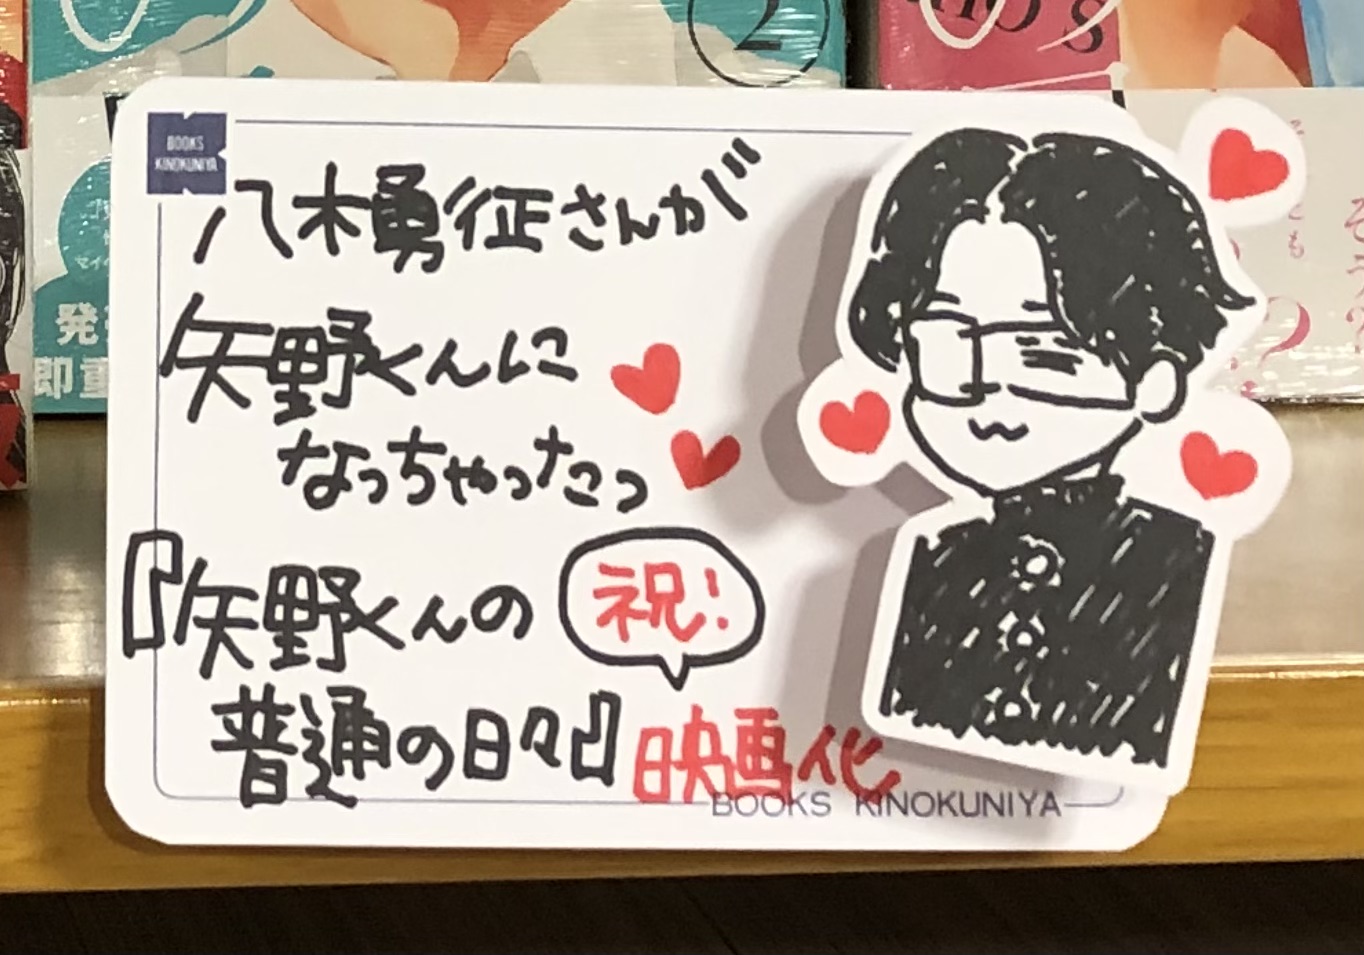 2
no's
BOOKS
KINOKUNIYA
八木勇征さんが
矢野くんに
なっちゃったっ
『矢野くんの
祝!
普通の日々』映画化
BOOKS KINOKUNIYA
発
即重